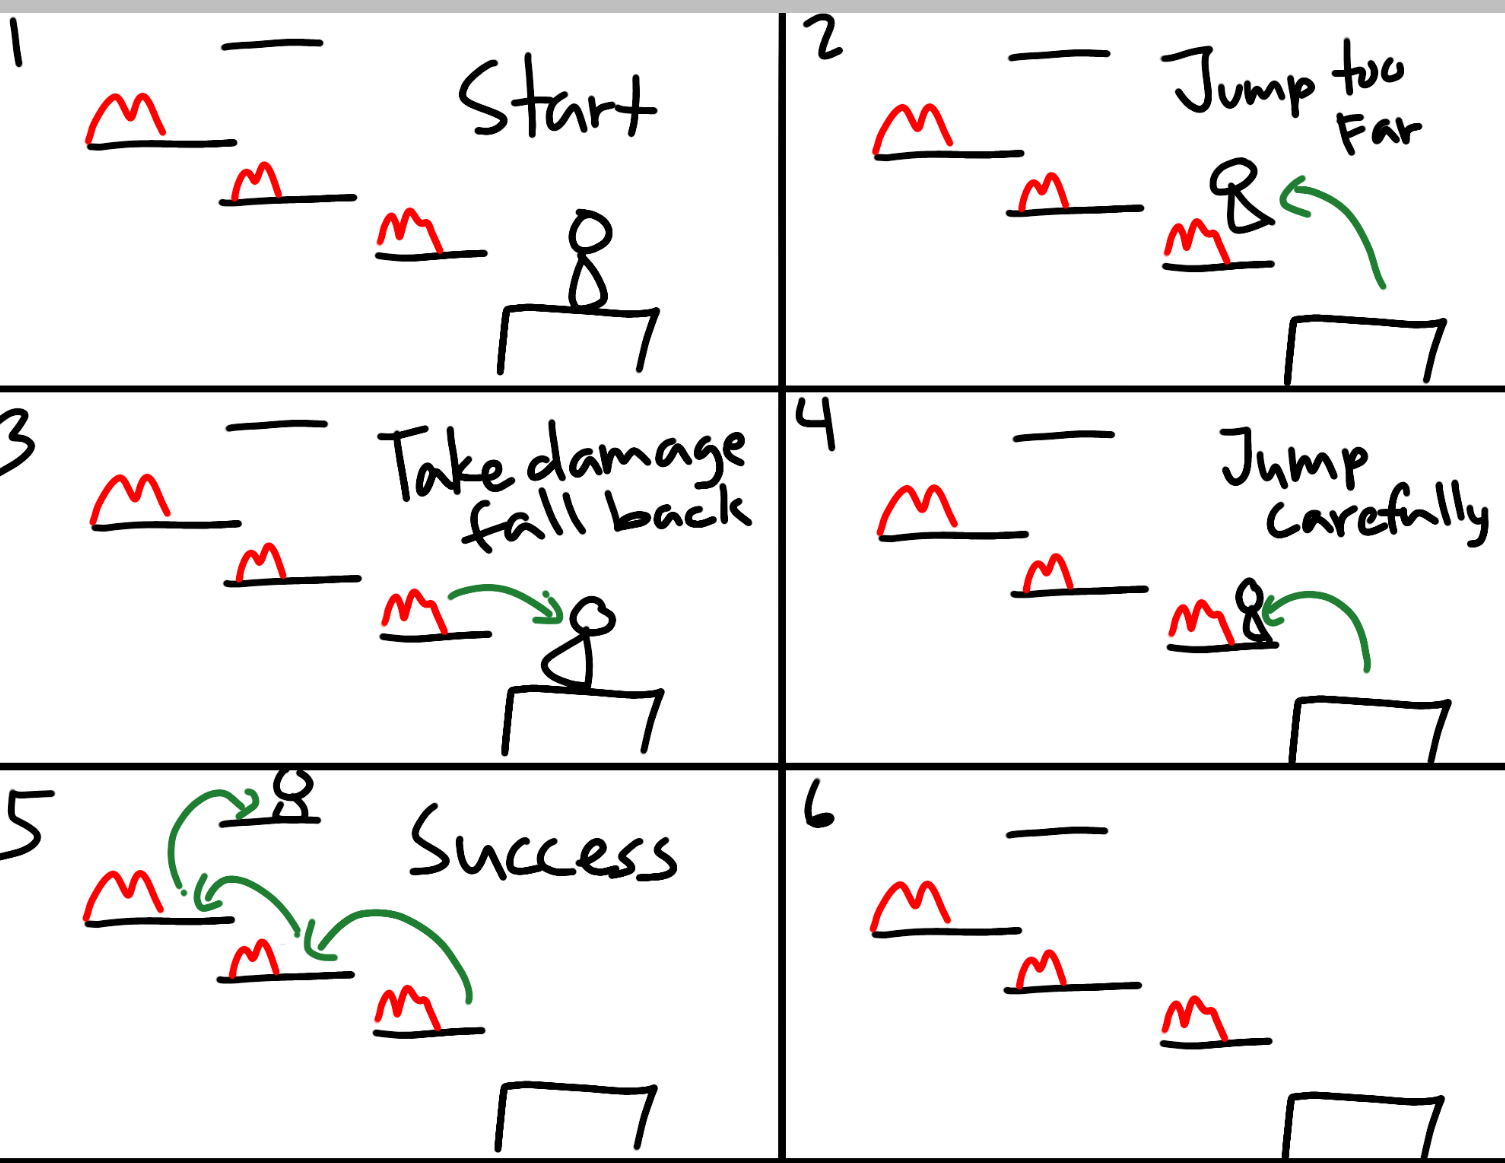 1
Start
2
Jump too
Far
3
Take damage
fall back
4
Jump
carefully
5
Success
6